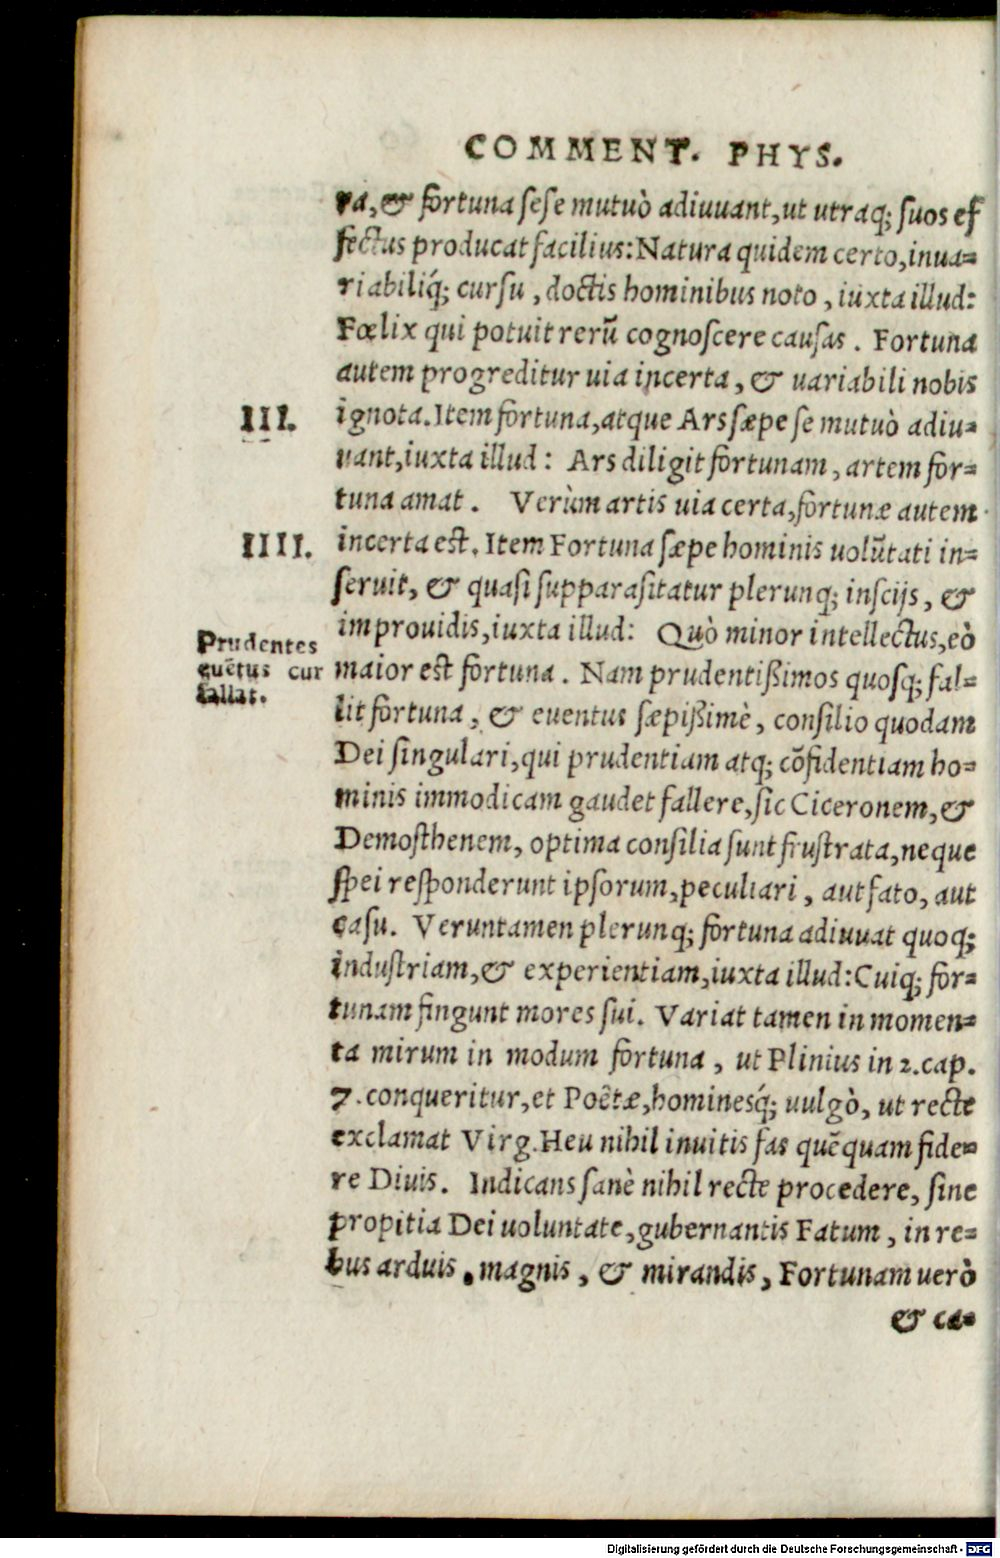 COMMENT. PHYS.
ra, & fortuna sese mutuò adiuuant, ut utraq; suos ef
fectus producat facilius: Natura quidem certo, inua-
riabiliq́; cursu, doctis hominibus noto, iuxta illud:
Fœlix qui potuit rerũ cognoscere causas. Fortuna
autem progreditur uia incerta, & uariabili nobis
III. ignota. Item fortuna, atque Ars sæpe se mutuò adiu-
uant, iuxta illud: Ars diligit fortunam, artem for-
tuna amat. Verùm artis uia certa, fortunæ autem
IIII. incerta est. Item Fortuna sæpe hominis uolũtati in-
seruit, & quasi supparasitatur plerunq; inscijs, &
improuidis, iuxta illud: Quò minor intellectus, eò
Prudentes
euẽtus cur
fallat.
maior est fortuna. Nam prudentißimos quosq; fal-
lit fortuna, & euentus sæpißimè, consilio quodam
Dei singulari, qui prudentiam atq; cõfidentiam ho-
minis immodicam gaudet fallere, sic Ciceronem, &
Demosthenem, optima consilia sunt frustrata, neque
spei responderunt ipsorum, peculiari, aut fato, aut
casu. Veruntamen plerunq; fortuna adiuuat quoq;
industriam, & experientiam, iuxta illud: Cuiq; for-
tunam fingunt mores sui. Variat tamen in momen-
ta mirum in modum fortuna, ut Plinius in 2. cap.
7. conqueritur, et Poëtæ, hominesq́; uulgò, ut recte
exclamat Virg. Heu nihil inuitis fas quẽquam fide-
re Diuis. Indicans sanè nihil recte procedere, sine
propitia Dei uoluntate, gubernantis Fatum, in re-
bus arduis, magnis, & mirandis, Fortunam uerò
& ca-
Digitalisierung gefördert durch die Deutsche Forschungsgemeinschaft - DFG